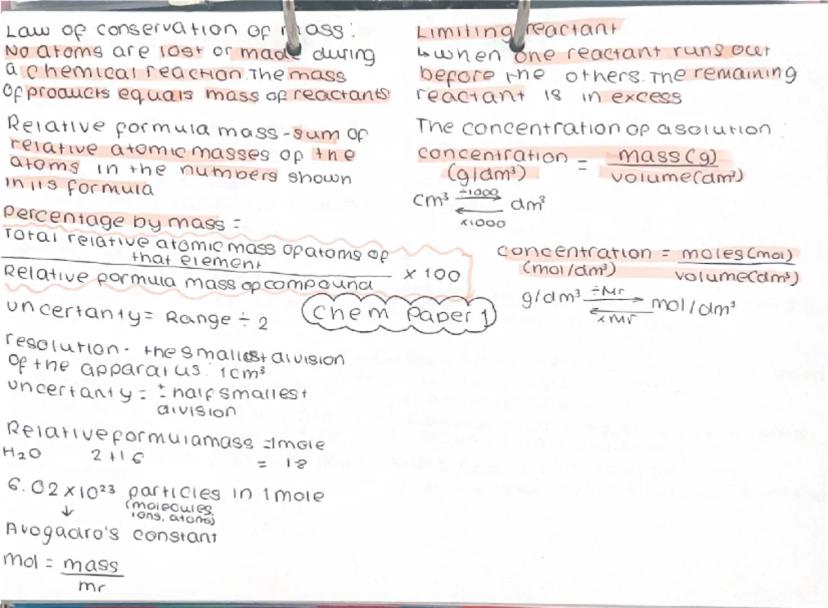 Law of conservation of mass:
No atoms are lost or made during
a chemical reaction. The mass
of products equals mass of reactants
Relative formula mass - sum of
relative atomic masses of the
atoms in the numbers shown
in its formula
Percentage by mass =
Total relative atomic mass of atoms of
that element
Relative formula mass of compound
× 100
uncertanty = Range ÷ 2
Chem Paper 1
resolution - the smallest division
of the apparatus. 1cm³
uncertanty = ± half smallest
division
Relative formula mass = 1 mole
H₂O 2+16 = 18
6.02 × 10²³ particles in 1 mole
(molecules,
ions, atoms)
↓
Avogadro's constant
mol = mass
mr
Limiting reactant
↳ when one reactant runs out
before the others. The remaining
reactant is in excess
The concentration of a solution:
concentration = mass (g)
(g/dm³) volume (dm³)
cm³ ÷1000 dm³
×1000
concentration = moles (mol)
(mol/dm³) volume (dm³)
g/dm³ ÷Mr mol/dm³
×Mr